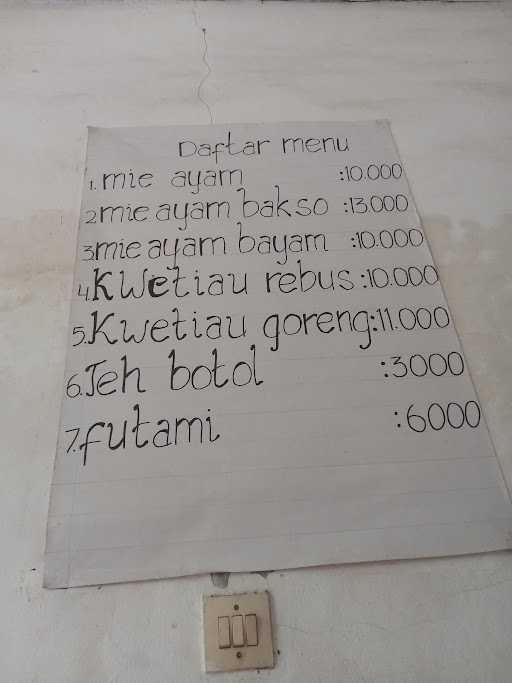 Daftar menu
1. mie ayam :10.000
2 mie ayam bakso :13.000
3.mie ayam bayam :10.000
4.Kwetiau rebus :10.000
5.Kwetiau goreng :11.000
6.Teh botol :3000
7.futami :6000